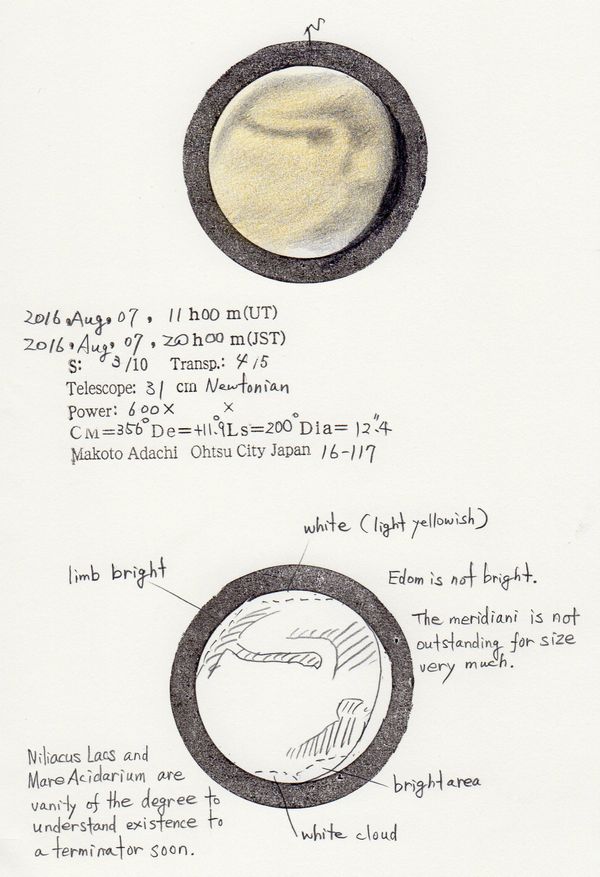 N
2016, Aug, 07, 11h00 m(UT)
2016, Aug, 07, 20h00 m(JST)
S: 3/10 Transp.: 4/5
Telescope: 31 cm Newtonian
Power: 600× ×
CM=356° De=+11.9° Ls=200° Dia= 12".4
Makoto Adachi Ohtsu City Japan 16-117
white (light yellowish)
limb bright
Edom is not bright.
The meridiani is not
outstanding for size
very much.
Niliacus Lacs and
Mare Acidarium are
vanity of the degree to
understand existence to
a terminator soon.
bright area
white cloud